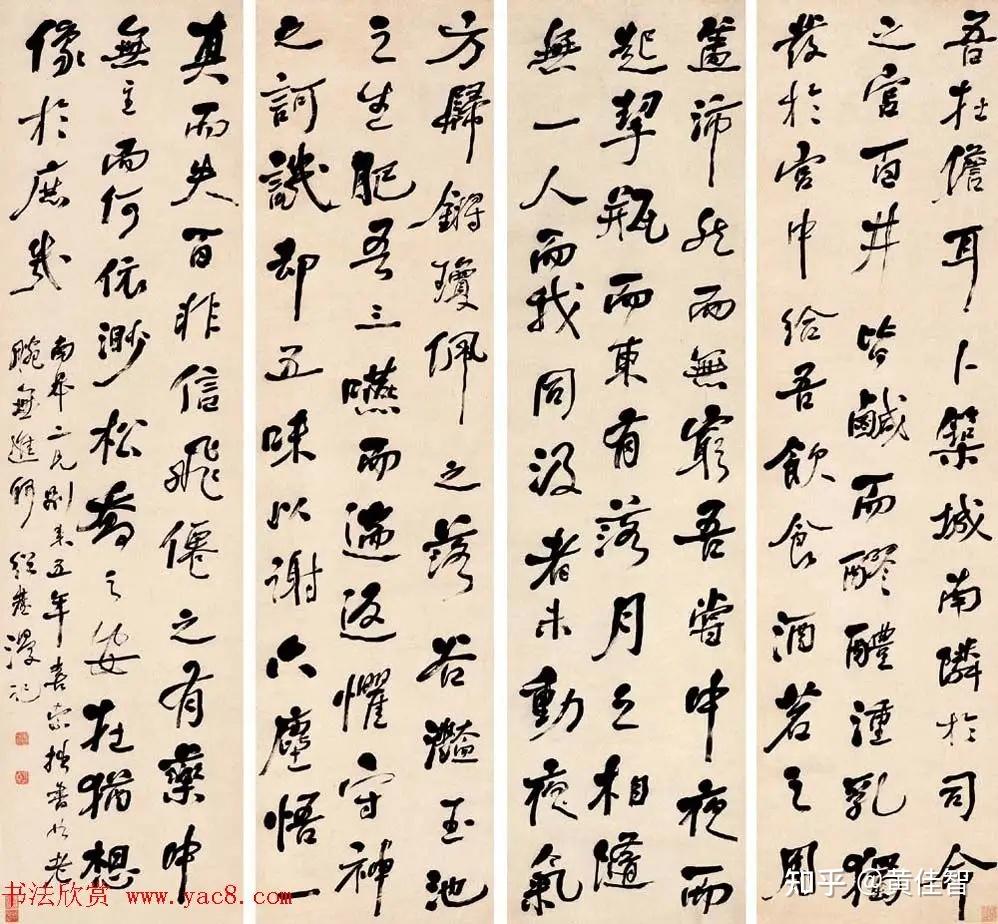 吾在儋耳卜築城南隣於司命
之宮百井皆鹹而醪醴湩乳獨
發於宮中給吾飲食酒茗之用
蓋沛然而無窮吾嘗中夜而
起挈瓶而東有落月之相隨
無一人而我同汲者未動夜氣
方歸鏘瓊佩之落谷灩玉池
之生肥吾三嚥而遄返懼守神
之訶譏却五味以謝六塵悟一
真而失百非信飛僊之有藥中
無主而何依渺松喬之安在猶想
像於庶幾
南屏二兄別來五年索拙書老
腕無進何紹基漫記
书法欣赏 www.yac8.com
知乎 @黄佳智